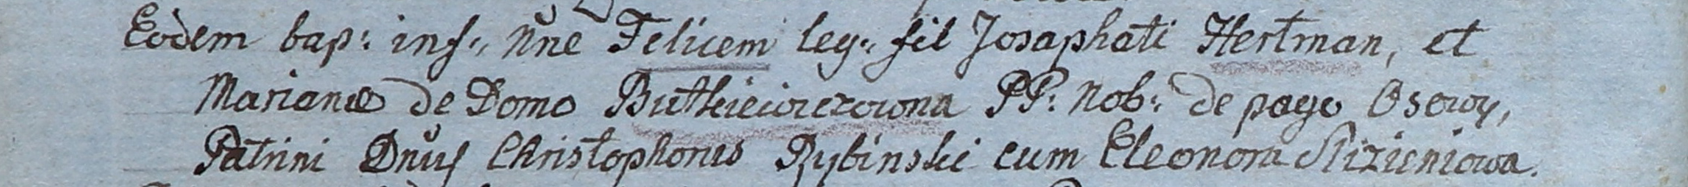 Eodem bap: inf:, Nne Felicem leg: fil Josaphati Hertman, et
Marianæ de Domo Butkiewiczowna PP: Nob: de pago Osowy,
Patrini Dnus Christophorus Rybinski cum Eleonora Slizieniowa.